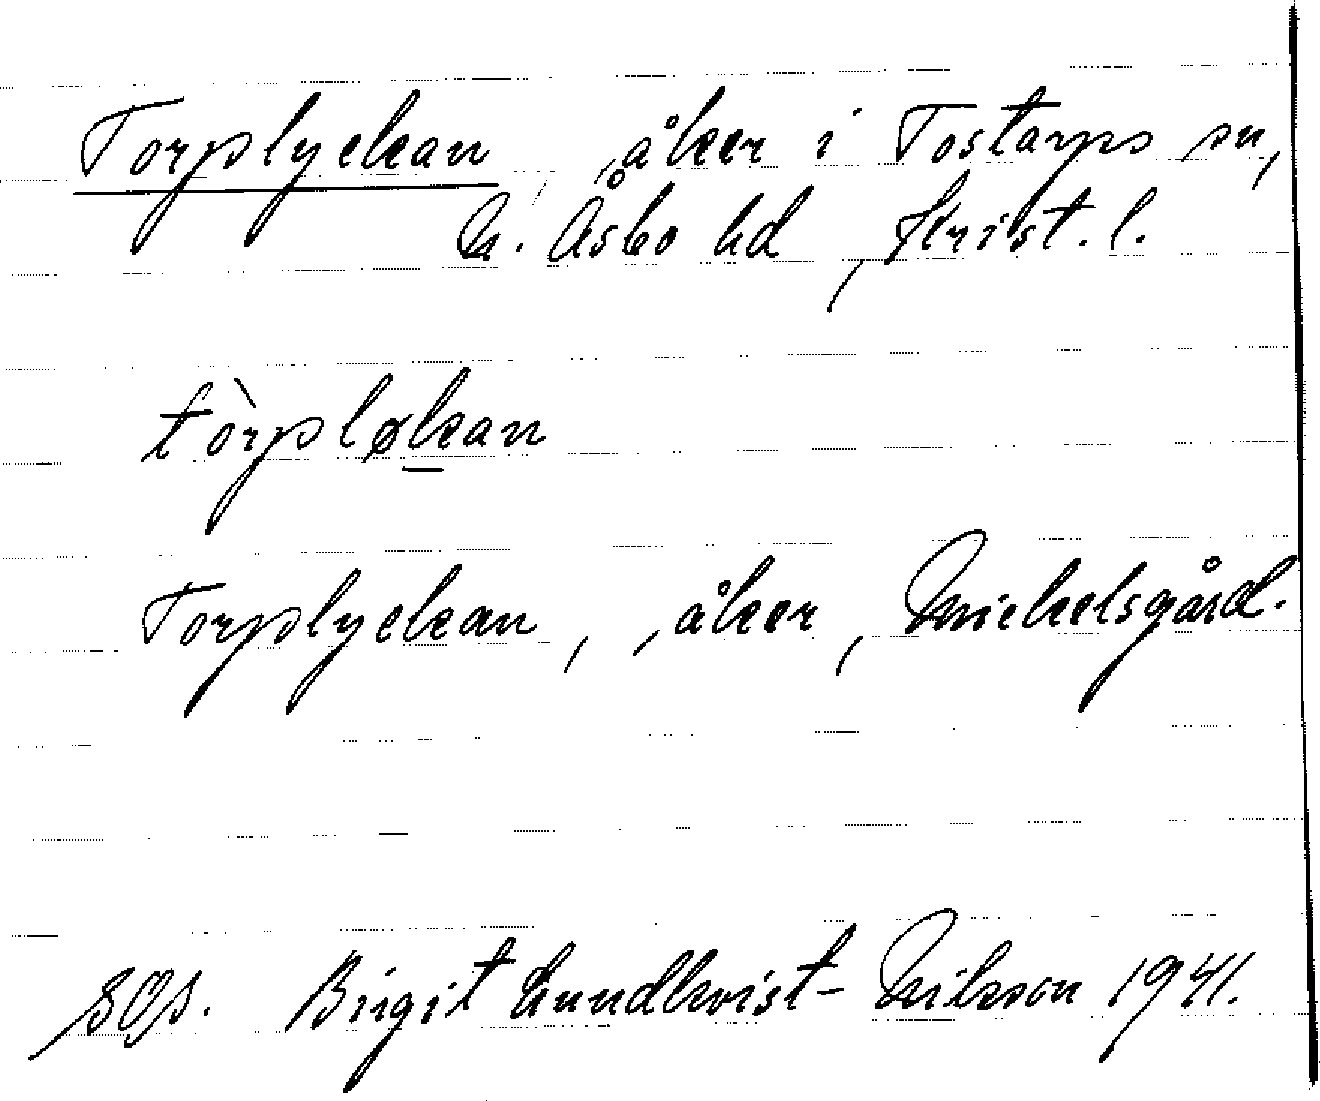 Torplyckan, åker i Tostarps sn,
N. Åsbo hd, Krist. l.
tòrpløkan
Torplyckan, åker, Mickelsgård.
Birgit Lundkvist-Nilsson 1941.